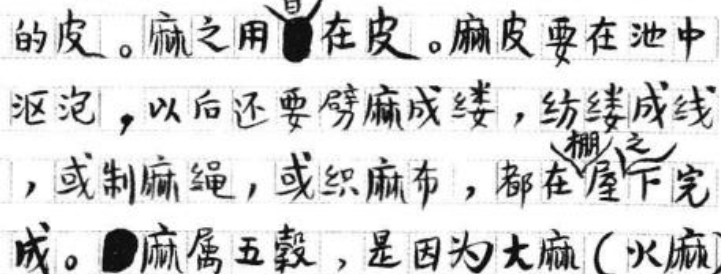 的皮。麻之用在皮。麻皮要在池中
沤泡，以后还要劈麻成缕，纺缕成线
，或制麻绳，或织麻布，都在棚屋之下完
成。麻属五穀，是因为大麻（火麻